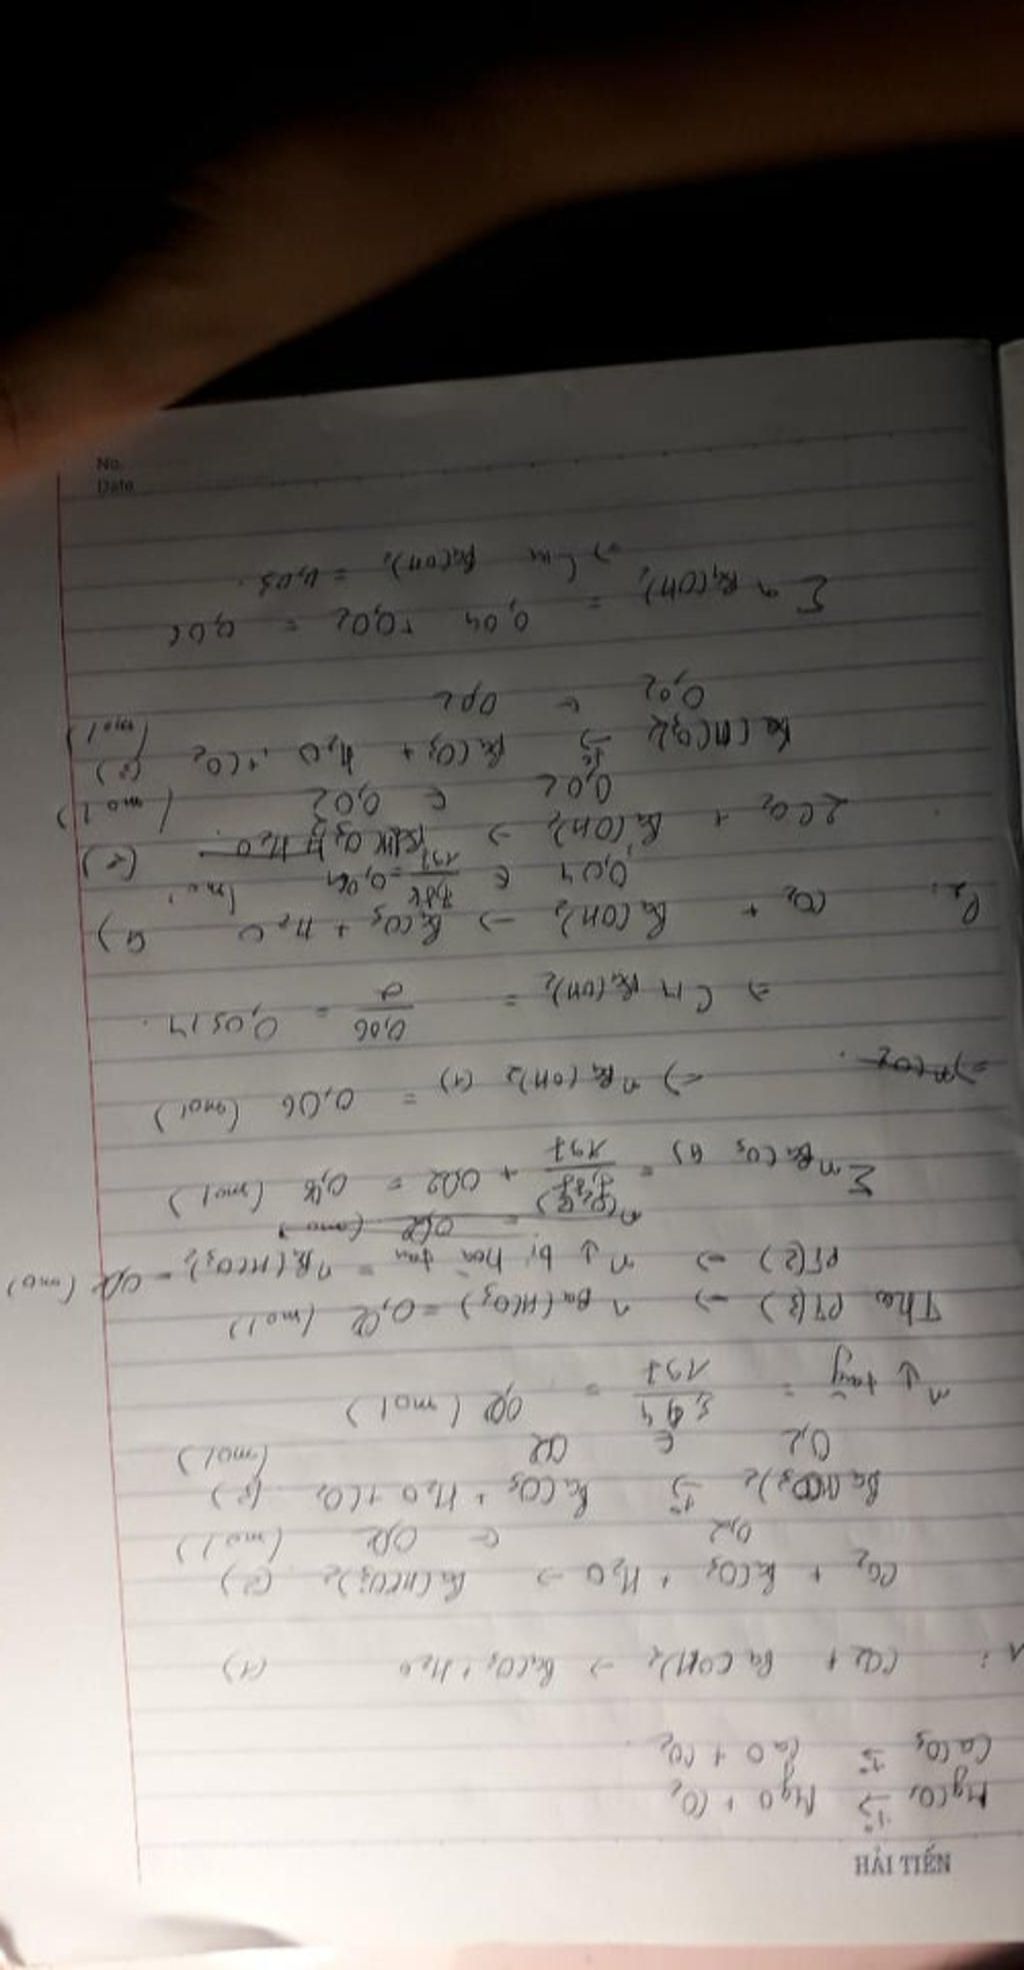 HẢI TIẾN
MgCO₃ t°→ MgO + CO₂
CaCO₃ t°→ CaO + CO₂
1: CO₂ + Ba(OH)₂ → BaCO₃ + H₂O (1)
CO₂ + BaCO₃ + H₂O → Ba(HCO₃)₂ (2)
0,2 ← 0,2 (mol)
Ba(HCO₃)₂ t°→ BaCO₃ + H₂O + CO₂ (3)
0,2 ← 0,2 (mol)
n↓ tăng = 3,94/197 = (mol)
Theo PT(3) → n Ba(HCO₃)₂ = (mol)
PT(2) → n↓ bị hòa tan = n Ba(HCO₃)₂ = (mol)
Σn BaCO₃ (1) = /197 + 0,02 = (mol)
=> nCO₂ . => n Ba(OH)₂ (1) = 0,06 (mol)
=> CM Ba(OH)₂ = 0,06/2 = 0,03M.
2: CO₂ + Ba(OH)₂ → BaCO₃ + H₂O (1)
0,04 ← 7,88/197 = 0,04 (mol)
2CO₂ + Ba(OH)₂ → (2)
0,02 ← 0,02 (mol)
Ba(HCO₃)₂ t°→ BaCO₃ + H₂O + CO₂ (3)
0,02 ← 0,02 (mol)
Σn Ba(OH)₂ = 0,04 + 0,02 = 0,06
=> CM Ba(OH)₂ = 0,03.
No.
Date